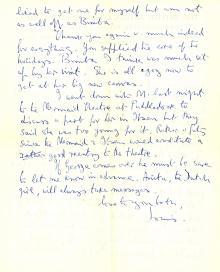 liked to get me for myself but am not
as well off as Bimba.
Thank you again v. much indeed
for everything. You supplied the core of the
holidays. Bimba I think was much set
up by her visit. She is all agog now to
get at her big new canvas.
I went down into M. last night
to the Mermaid Theatre at Puddledock to
discuss a part for her in Ibsen but they
said she was too young for it. Rather a pity
since the Mermaid & Ibsen would constitute a
rather good re-entry to the theatre.
If George comes over he must be sure
to let me know in advance. Anita, the Dutch
girl, will always take messages.
Love to you both,
Louis.